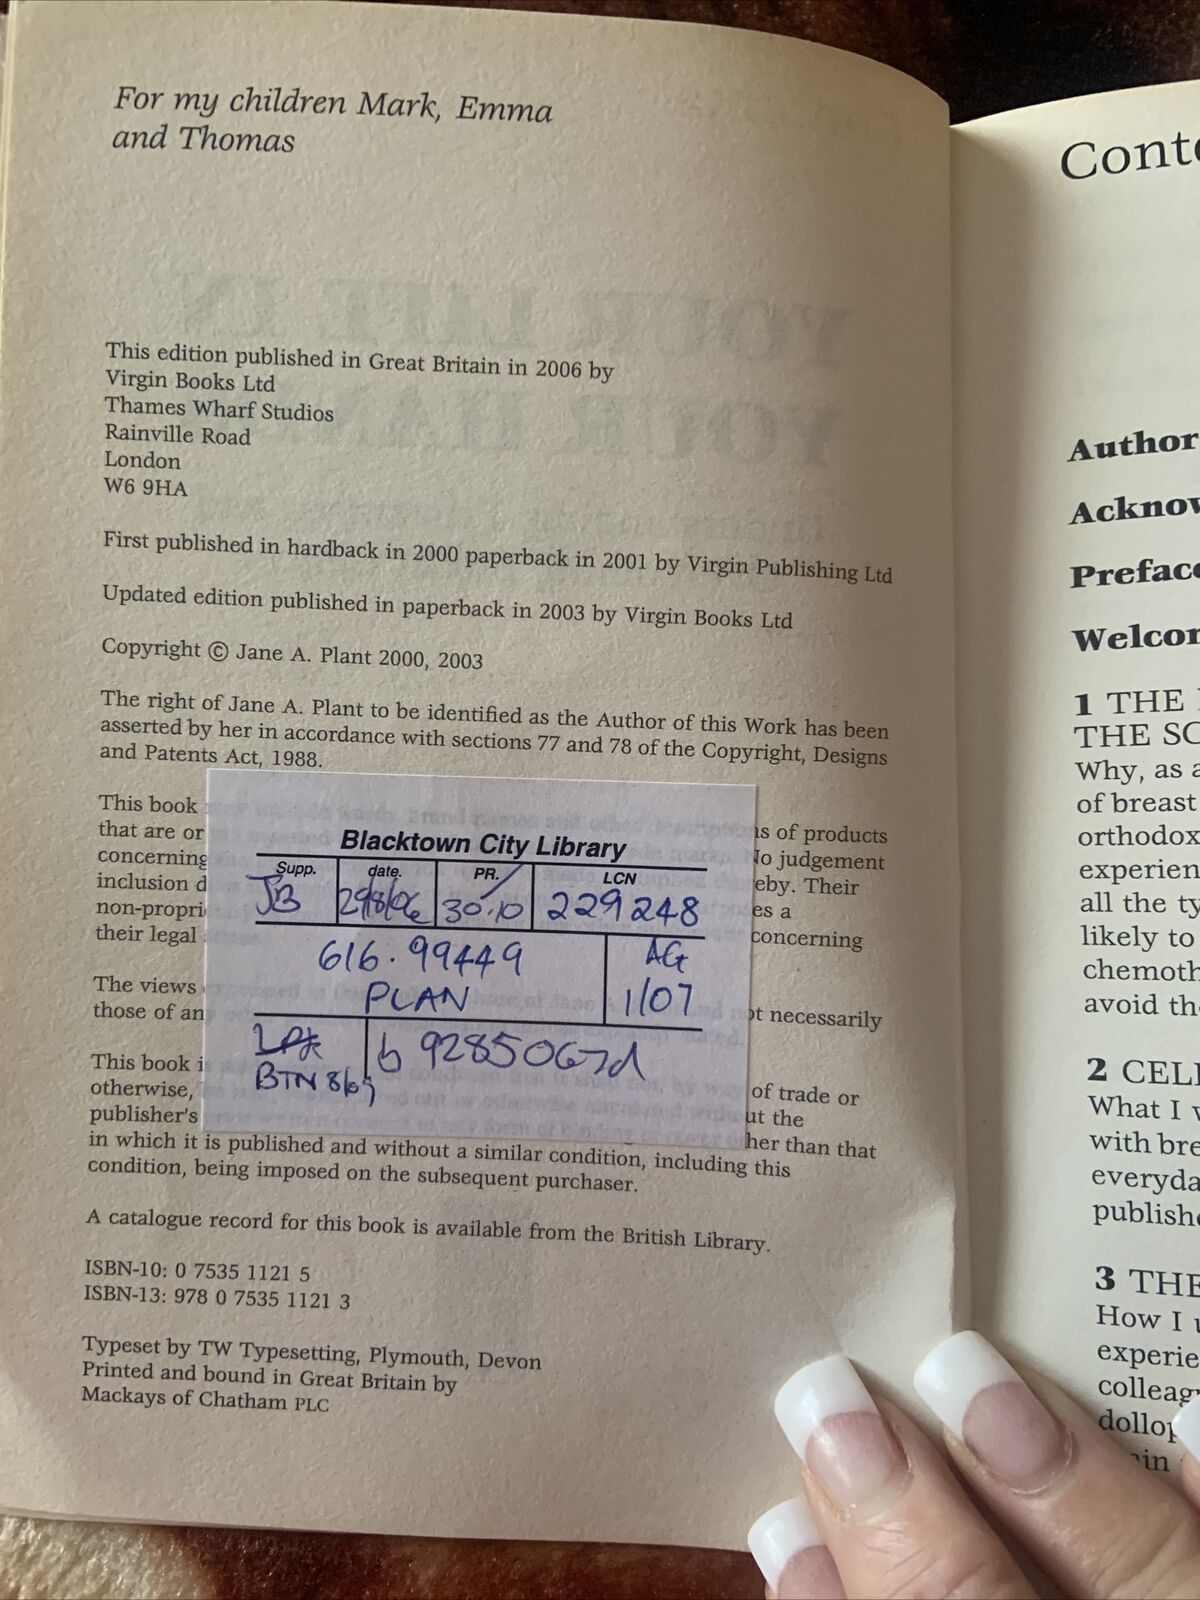 For my children Mark, Emma
and Thomas
This edition published in Great Britain in 2006 by
Virgin Books Ltd
Thames Wharf Studios
Rainville Road
London
W6 9HA
First published in hardback in 2000 paperback in 2001 by Virgin Publishing Ltd
Updated edition published in paperback in 2003 by Virgin Books Ltd
Copyright © Jane A. Plant 2000, 2003
The right of Jane A. Plant to be identified as the Author of this Work has been
asserted by her in accordance with sections 77 and 78 of the Copyright, Designs
and Patents Act, 1988.
This book
that are or
concerning
inclusion d
non-propri
their legal
s of products
No judgement
eby. Their
es a
concerning
The views
those of an
ot necessarily
This book i
otherwise,
publisher's
of trade or
ut the
her than that
in which it is published and without a similar condition, including this
condition, being imposed on the subsequent purchaser.
A catalogue record for this book is available from the British Library.
ISBN-10: 0 7535 1121 5
ISBN-13: 978 0 7535 1121 3
Typeset by TW Typesetting, Plymouth, Devon
Printed and bound in Great Britain by
Mackays of Chatham PLC
Blacktown City Library
Supp. date. PR. LCN
JB 29/8/06 30.10 229248
616.99449 AG
PLAN 1/07
b 9285067d
BTN 8/07
Conte
Author
Acknow
Preface
Welcom
1 THE
THE SC
Why, as a
of breast
orthodox
experien
all the ty
likely to
chemoth
avoid the
2 CELL
What I w
with bre
everyda
publishe
3 THE
How I u
experie
colleag
dollop